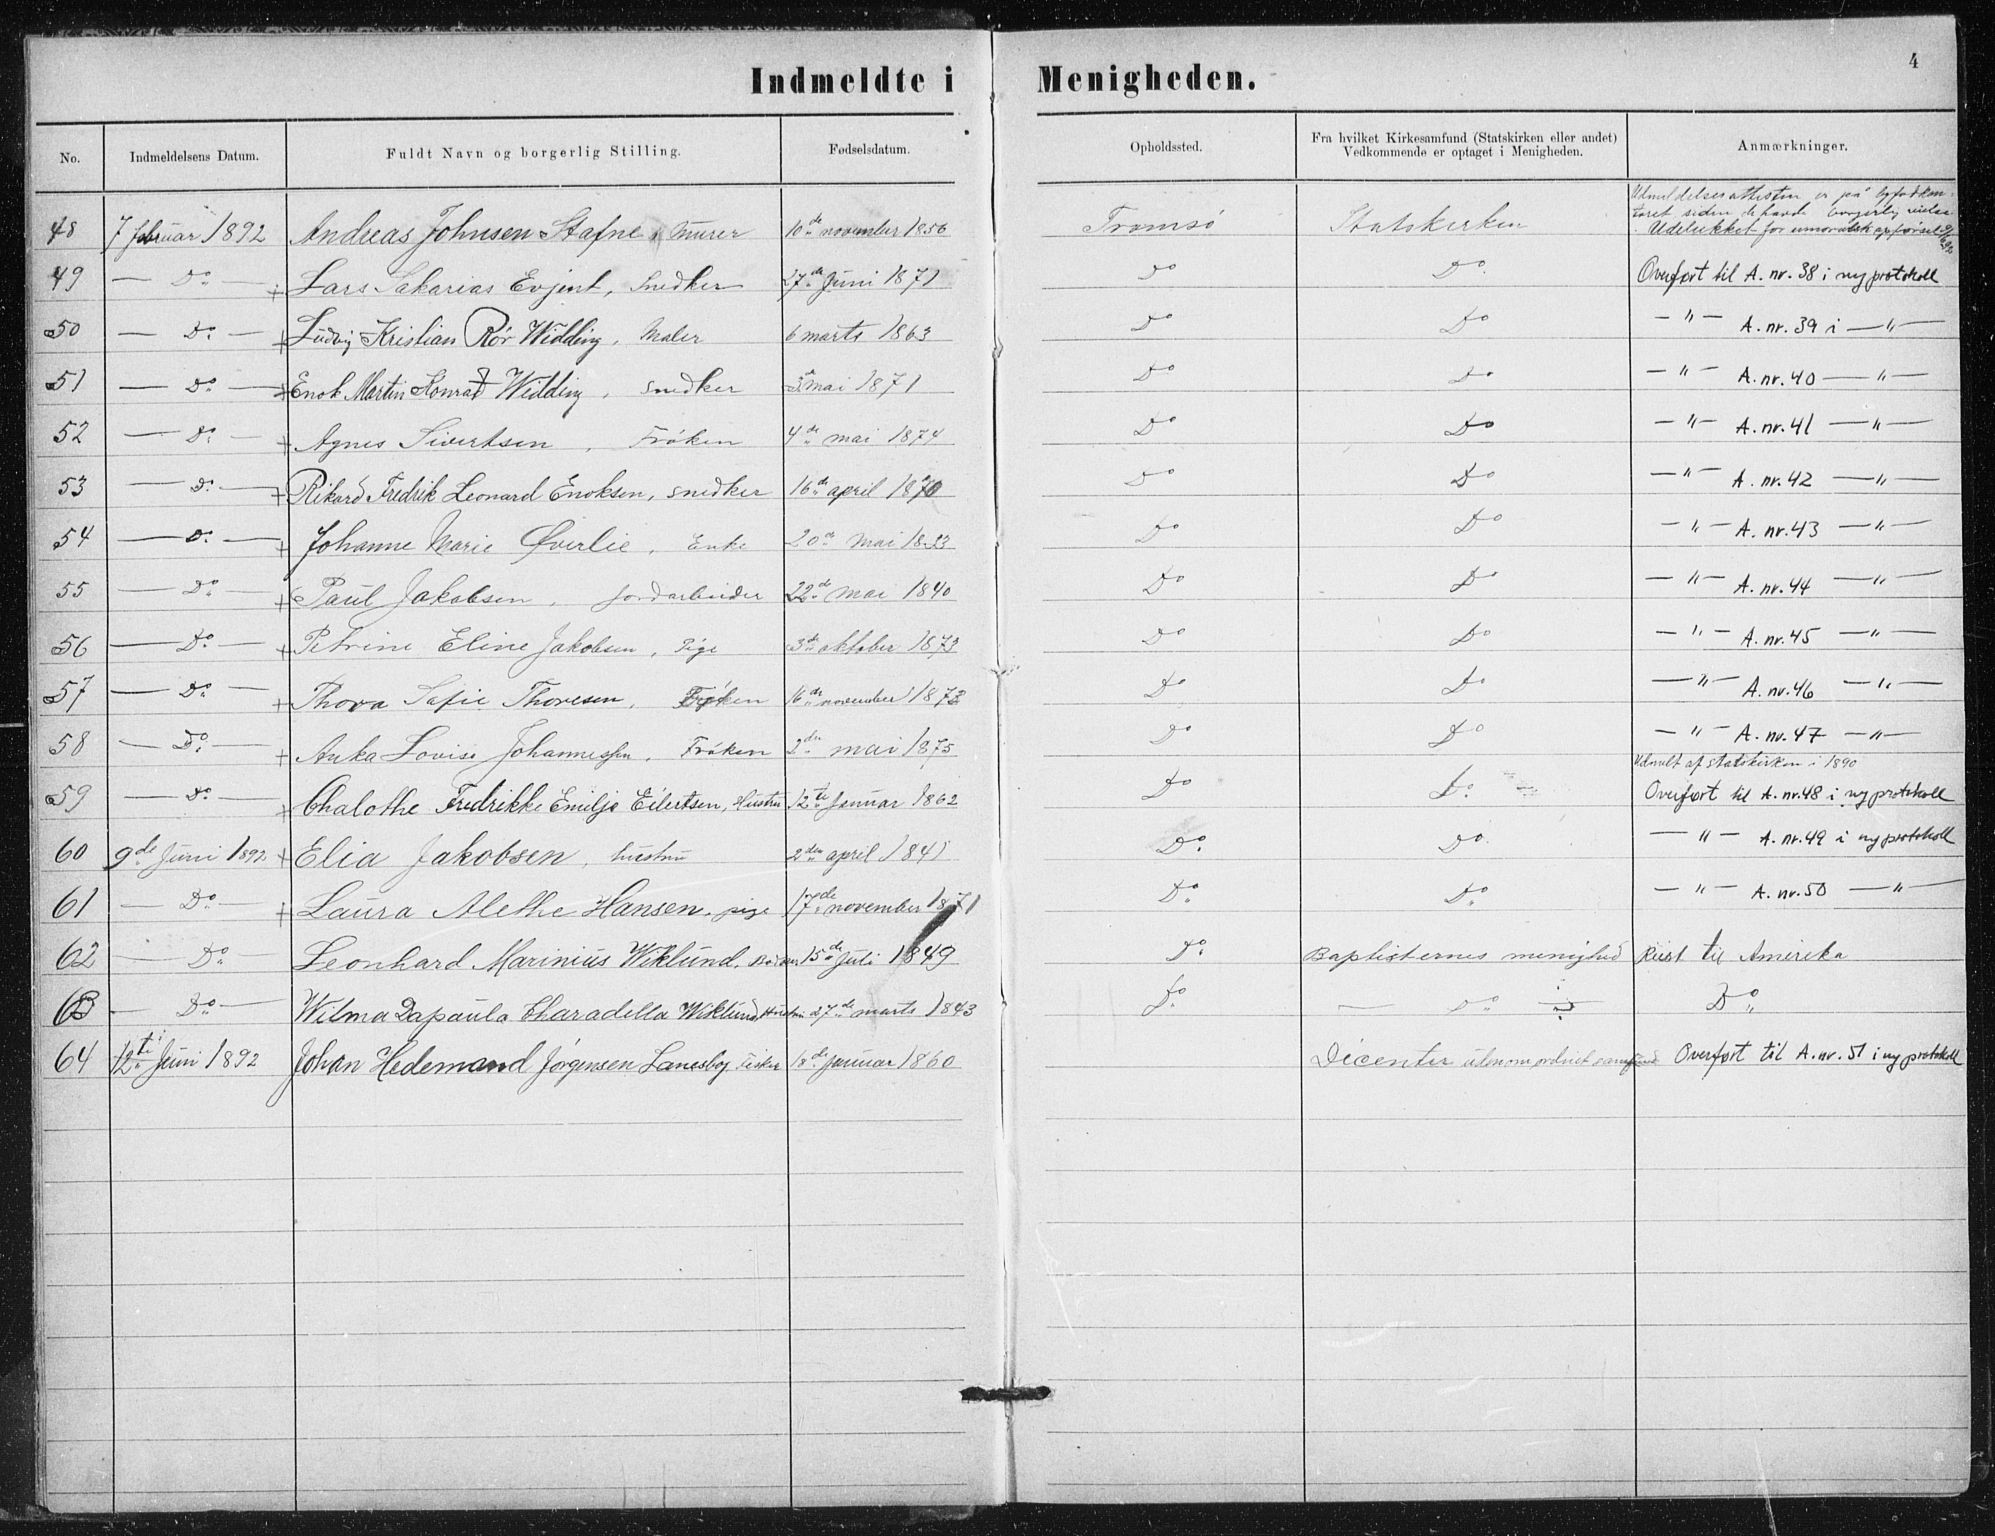 4
Indmeldte i Menigheden.
No. Indmeldelsens Datum. Fuldt Navn og borgerlig Stilling. Fødselsdatum. Opholdssted. Fra hvilket Kirkesamfund (Statskirken eller andet) Vedkommende er optaget i Menigheden. Anmærkninger.
Udmeldelsesattesten er på byfodkon-
toret siden de havde borgerlig vielse
48 7 februar 1892 Andreas Johnsen Stafne, Murer 10de november 1856 Tromsø Statskirken Udelukket for umoralsk apførsel
49 — Do — + Lars Sakarias Evjent, Snedker 27de Juni 1871 Do Do. Overført til A. nr. 38 i ny protokoll
50 — Do — + Ludvig Kristian Rör Widding, Maler 6 marts 1863 Do Do — " — A. nr. 39 i — " —
51 — Do — + Enok Martin Konrad Widding, snedker 3 mai 1871 Do Do — " — A. nr. 40 — " —
52 — Do — + Agnes Sivertsen, Frøken 4de mai 1874 Do Do — " — A. nr. 41 — " —
53 — Do — + Rikard Fredrik Leonard Enoksen, snedker 16de april 1870 Do Do — " — A. nr. 42 — " —
54 — Do — + Johanne Marie Øverlie, Enke 20de mai 1823 Do Do — " — A. nr. 43 — " —
55 — Do — + Paul Jakobsen, jordarbeider 22de mai 1840 Do Do — " — A. nr. 44 — " —
56 — Do — + Petrine Eline Jakobsen, Pige 3de oktober 1873 Do Do — " — A. nr. 45 — " —
57 — Do — + Thora Sofie Thoresen, Frøken 16de november 1873 Do Do — " — A. nr. 46 — " —
58 — Do — + Anka Lovise Johannessen, Frøken 2den mai 1875 Do Do — " — A. nr. 47 — " —
Udmelt af statskirken i 1890
59 — Do — + Chalothe Fredrikke Emilje Eilertsen, Hustru 12te Januar 1862 Do Do. Overført til A. nr. 48 i ny protokoll
60 9de Juni 1892 + Elia Jakobsen, hustru 2den april 1841 Do. Do. — " — A. nr. 49 i ny protokoll
61 — Do — + Laura Alethe Hansen, pige 17de november 1871 Do. Do. — " — A. nr. 50 — " —
62 — Do — Leonhard Marinius Wiklund, 15de Juli 1849 Do. Baptisternes menighed Reist til Amerika
63 — Do — Wilma Dapaula Charadella Wiklund, Hustru 27de marts 1843 Do. — Do — Do
64 12te Juni 1892 Johan Hedemand Jørgensen Lanesbog Fisker 18de Januar 1860 Dicenter Overført til A. nr. 51 i ny protokoll